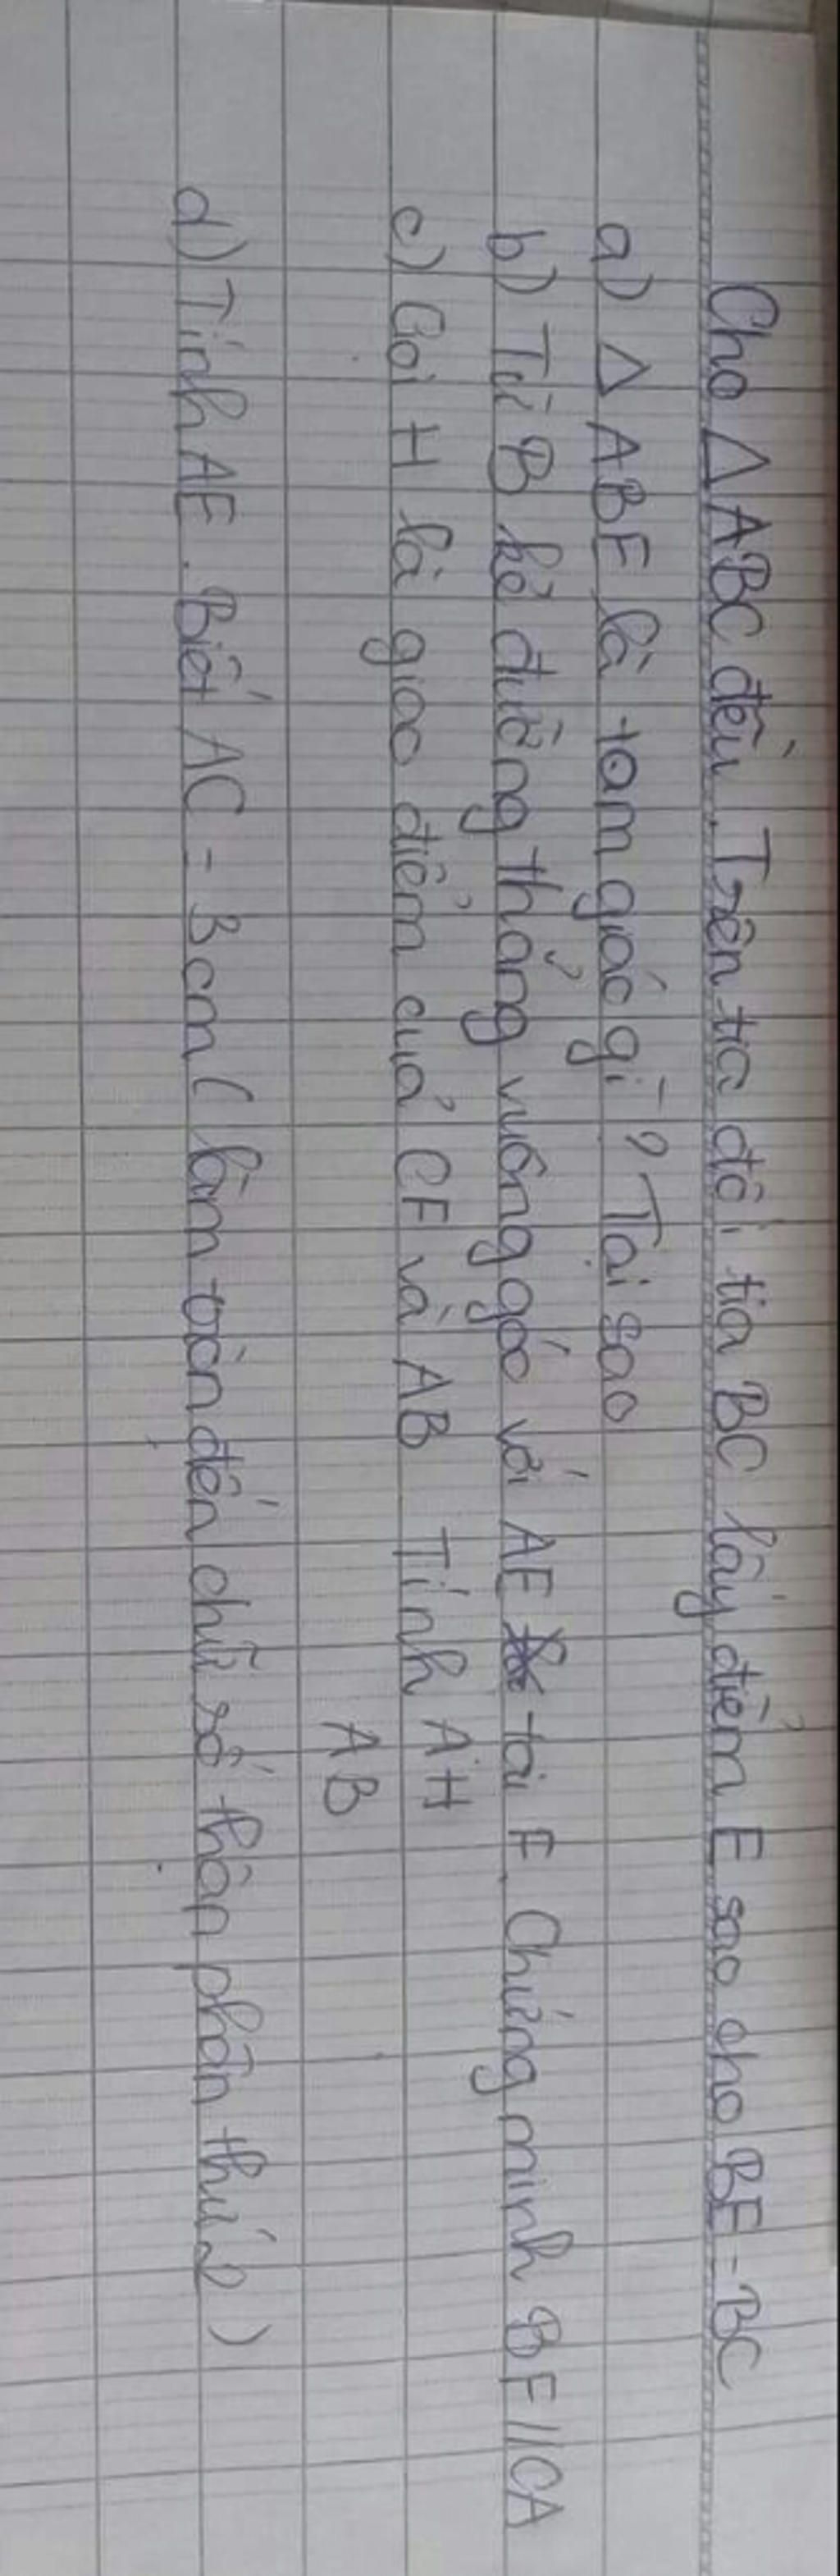 Cho △ ABC đều. Trên tia đối tia BC lấy điểm E sao cho BE = BC
a) △ ABE là tam giác gì? Tại sao
b) Từ B kẻ đường thẳng vuông góc với AE tại F. Chứng minh BF // CA
c) Gọi H là giao điểm của CF và AB Tính AH
AB
d) Tính AE. Biết AC = 3cm ( làm tròn đến chữ số thập phân thứ 2)